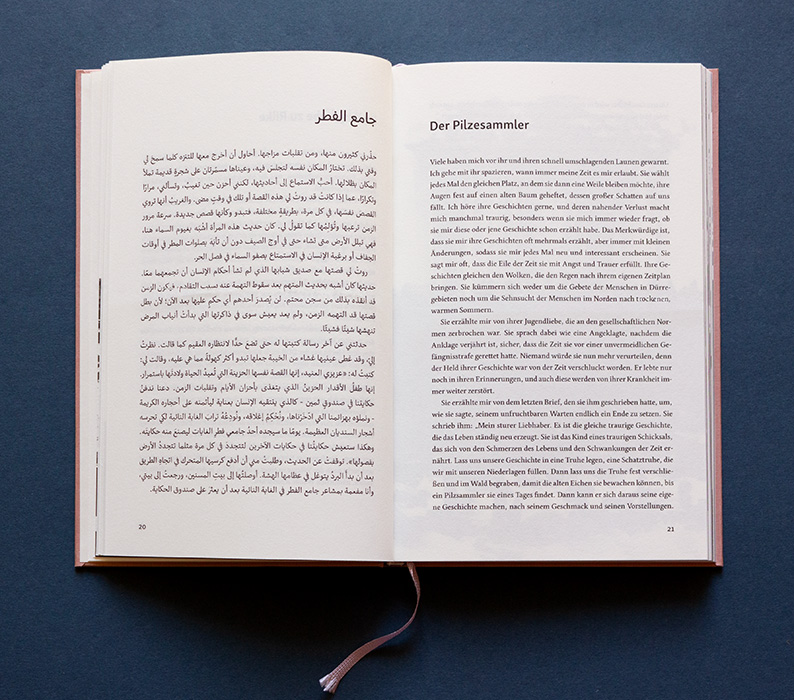 جامع الفطر
حذّرني كثيرون منها، ومن تقلبات مزاجها. أحاول أن أخرج معها للتنزه كلما سمح لي
وقتي بذلك. تختارُ المكان نفسه لتجلسَ فيه، وعيناها مسمّرتان على شجرةٍ قديمة تملأ
المكان بظلالها. أحبُّ الاستماع إلى أحاديثها، لكنني أحزن حين تغيبُ، وتسألني، مرارًا
وتكرارًا، عما إذا كانت قد روتْ لي هذه القصة أو تلك في وقتٍ مضى. والغريبُ أنها تروي
القصص نفسَها، في كل مرة، بطريقةٍ مختلفة، فتبدو وكأنها قصص جديدة. سرعة مرور
الزمن ترعبها وتُؤلمُها كما تقولُ لي. كان حديث هذه المرأة أشْبَه بغيوم السماء هنا،
فهي تبلل الأرض متى تشاء حتى في أوج الصيف دون أن تأبه بصلوات المطر في أوقات
الجفاف أو برغبة الإنسان في الاستمتاع بصفو السماء في فصل الحر.
روتْ لي قصتها مع صديق شبابها الذي لم تشأ أحكام الإنسان أن تجمعهما معًا.
حديثها كان أشبه بحديث المتهم بعد سقوط التهمة عنه بسبب التقادم. فيكون الزمن
قد أنقذه بذلك من سجن محتم. لن يُصدرَ أحدهم أي حكم عليها بعد الآن؛ لأن بطل
قصتها قد التهمه الزمن، ولم يعد يعيش سوى في ذاكرتها التي بدأتْ أنياب المرض
تنهشها شيئًا فشيئًا.
حدثتني عن آخر رسالة كتبتها له حتى تضعَ حدًّا لانتظاره العقيم كما قالت. نظرتْ
إليّ، وقد غطى عينيها غشاء من الخيبة جعلها تبدو أكثر كهولةً مما هي عليه، وقالت لي:
كتبتُ له: «عزيزي العنيد، إنها القصة نفسها الحزينة التي تُعيدُ الحياة ولادتها باستمرار.
إنها طفلُ الأقدار الحزينُ الذي يتغذى بأحزان الأيام وتقلبات الزمن. دعنا ندفنْ
حكايتنا في صندوقٍ ثمين - كالذي ينتقيه الإنسان بعناية ليأتمنه على أحجاره الكريمة
- ونملؤه بهزائمنا التي ادّخرْناها، ونُحْكِمُ إغلاقه، ونُودِعُهُ ترابَ الغابة النائية لكي تحرسه
أشجار السنديان العظيمة. يومًا ما سيجده أحدُ جامعي فطر الغابات ليصنع منه حكايته.
وهكذا ستعيش حكايتُنا في حكايات الآخرين لتتجددَ في كل مرة مثلما تتجددُ الأرض
بفصولها». توقفتْ عن الحديث، وطلبتْ منى أن أدفع كرسيها المتحرك في اتجاه الطريق
بعد أن بدأ البردُ يتوغل في عظامها الهشة. أوصلتُها إلى بيتِ المسنين، ورجعتُ إلى بيتي،
وأنا مفعمة بمشاعر جامع الفطر في الغابة النائية بعد أن يعثرَ على صندوق الحكاية.
20
Der Pilzesammler
Viele haben mich vor ihr und ihren schnell umschlagenden Launen gewarnt.
Ich gehe mit ihr spazieren, wann immer meine Zeit es mir erlaubt. Sie wählt
jedes Mal den gleichen Platz, an dem sie dann eine Weile bleiben möchte, ihre
Augen fest auf einen alten Baum geheftet, dessen großer Schatten auf uns
fällt. Ich höre ihre Geschichten gerne, und deren nahender Verlust macht
mich manchmal traurig, besonders wenn sie mich immer wieder fragt, ob
sie mir diese oder jene Geschichte schon erzählt habe. Das Merkwürdige ist,
dass sie mir ihre Geschichten oft mehrmals erzählt, aber immer mit kleinen
Änderungen, sodass sie mir jedes Mal neu und interessant erscheinen. Sie
sagt mir oft, dass die Eile der Zeit sie mit Angst und Trauer erfüllt. Ihre Ge-
schichten gleichen den Wolken, die den Regen nach ihrem eigenen Zeitplan
bringen. Sie kümmern sich weder um die Gebete der Menschen in Dürre-
gebieten noch um die Sehnsucht der Menschen im Norden nach trockenen,
warmen Sommern.
Sie erzählte mir von ihrer Jugendliebe, die an den gesellschaftlichen Nor-
men zerbrochen war. Sie sprach dabei wie eine Angeklagte, nachdem die
Anklage verjährt ist, sicher, dass die Zeit sie vor einer unvermeidlichen Ge-
fängnisstrafe gerettet hatte. Niemand würde sie nun mehr verurteilen, denn
der Held ihrer Geschichte war von der Zeit verschluckt worden. Er lebte nur
noch in ihren Erinnerungen, und auch diese werden von ihrer Krankheit im-
mer weiter zerstört.
Sie erzählte mir von dem letzten Brief, den sie ihm geschrieben hatte, um,
wie sie sagte, seinem unfruchtbaren Warten endlich ein Ende zu setzen. Sie
schrieb ihm: „Mein sturer Liebhaber. Es ist die gleiche traurige Geschichte,
die das Leben ständig neu erzeugt. Sie ist das Kind eines traurigen Schicksals,
das sich von den Schmerzen des Lebens und den Schwankungen der Zeit er-
nährt. Lass uns unsere Geschichte in eine Truhe legen, eine Schatztruhe, die
wir mit unseren Niederlagen füllen. Dann lass uns die Truhe fest verschlie-
ßen und im Wald begraben, damit die alten Eichen sie bewachen können, bis
ein Pilzsammler sie eines Tages findet. Dann kann er sich daraus seine eige-
ne Geschichte machen, nach seinem Geschmack und seinen Vorstellungen.
21